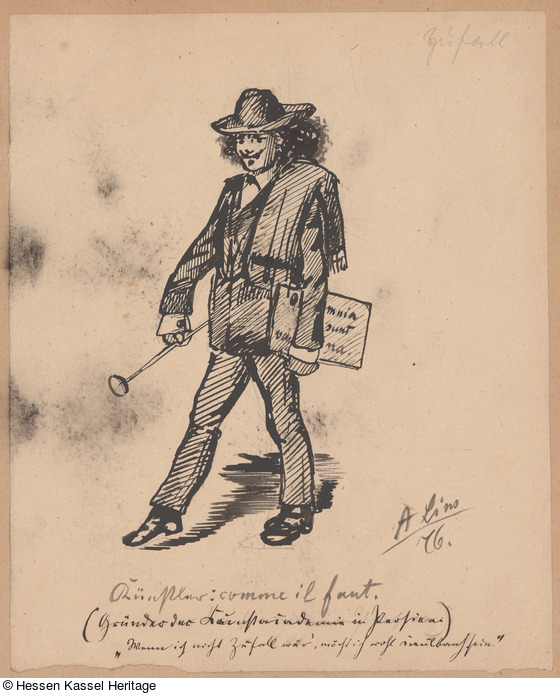 Zufall
mnia
sunt
va na
A Lins
76.
Künstler: comme il faut.
(Gründer der Kunstacademie in Persien)
„Wenn ich nicht Zufall wär', möcht ich wohl
© Hessen Kassel Heritage